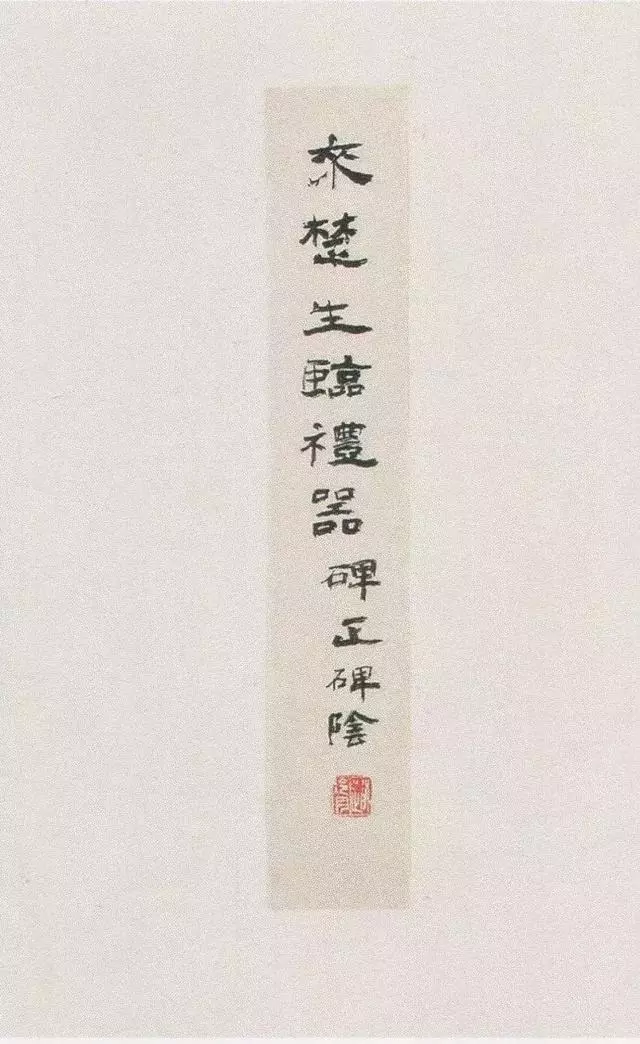 來楚生臨禮器碑正碑陰